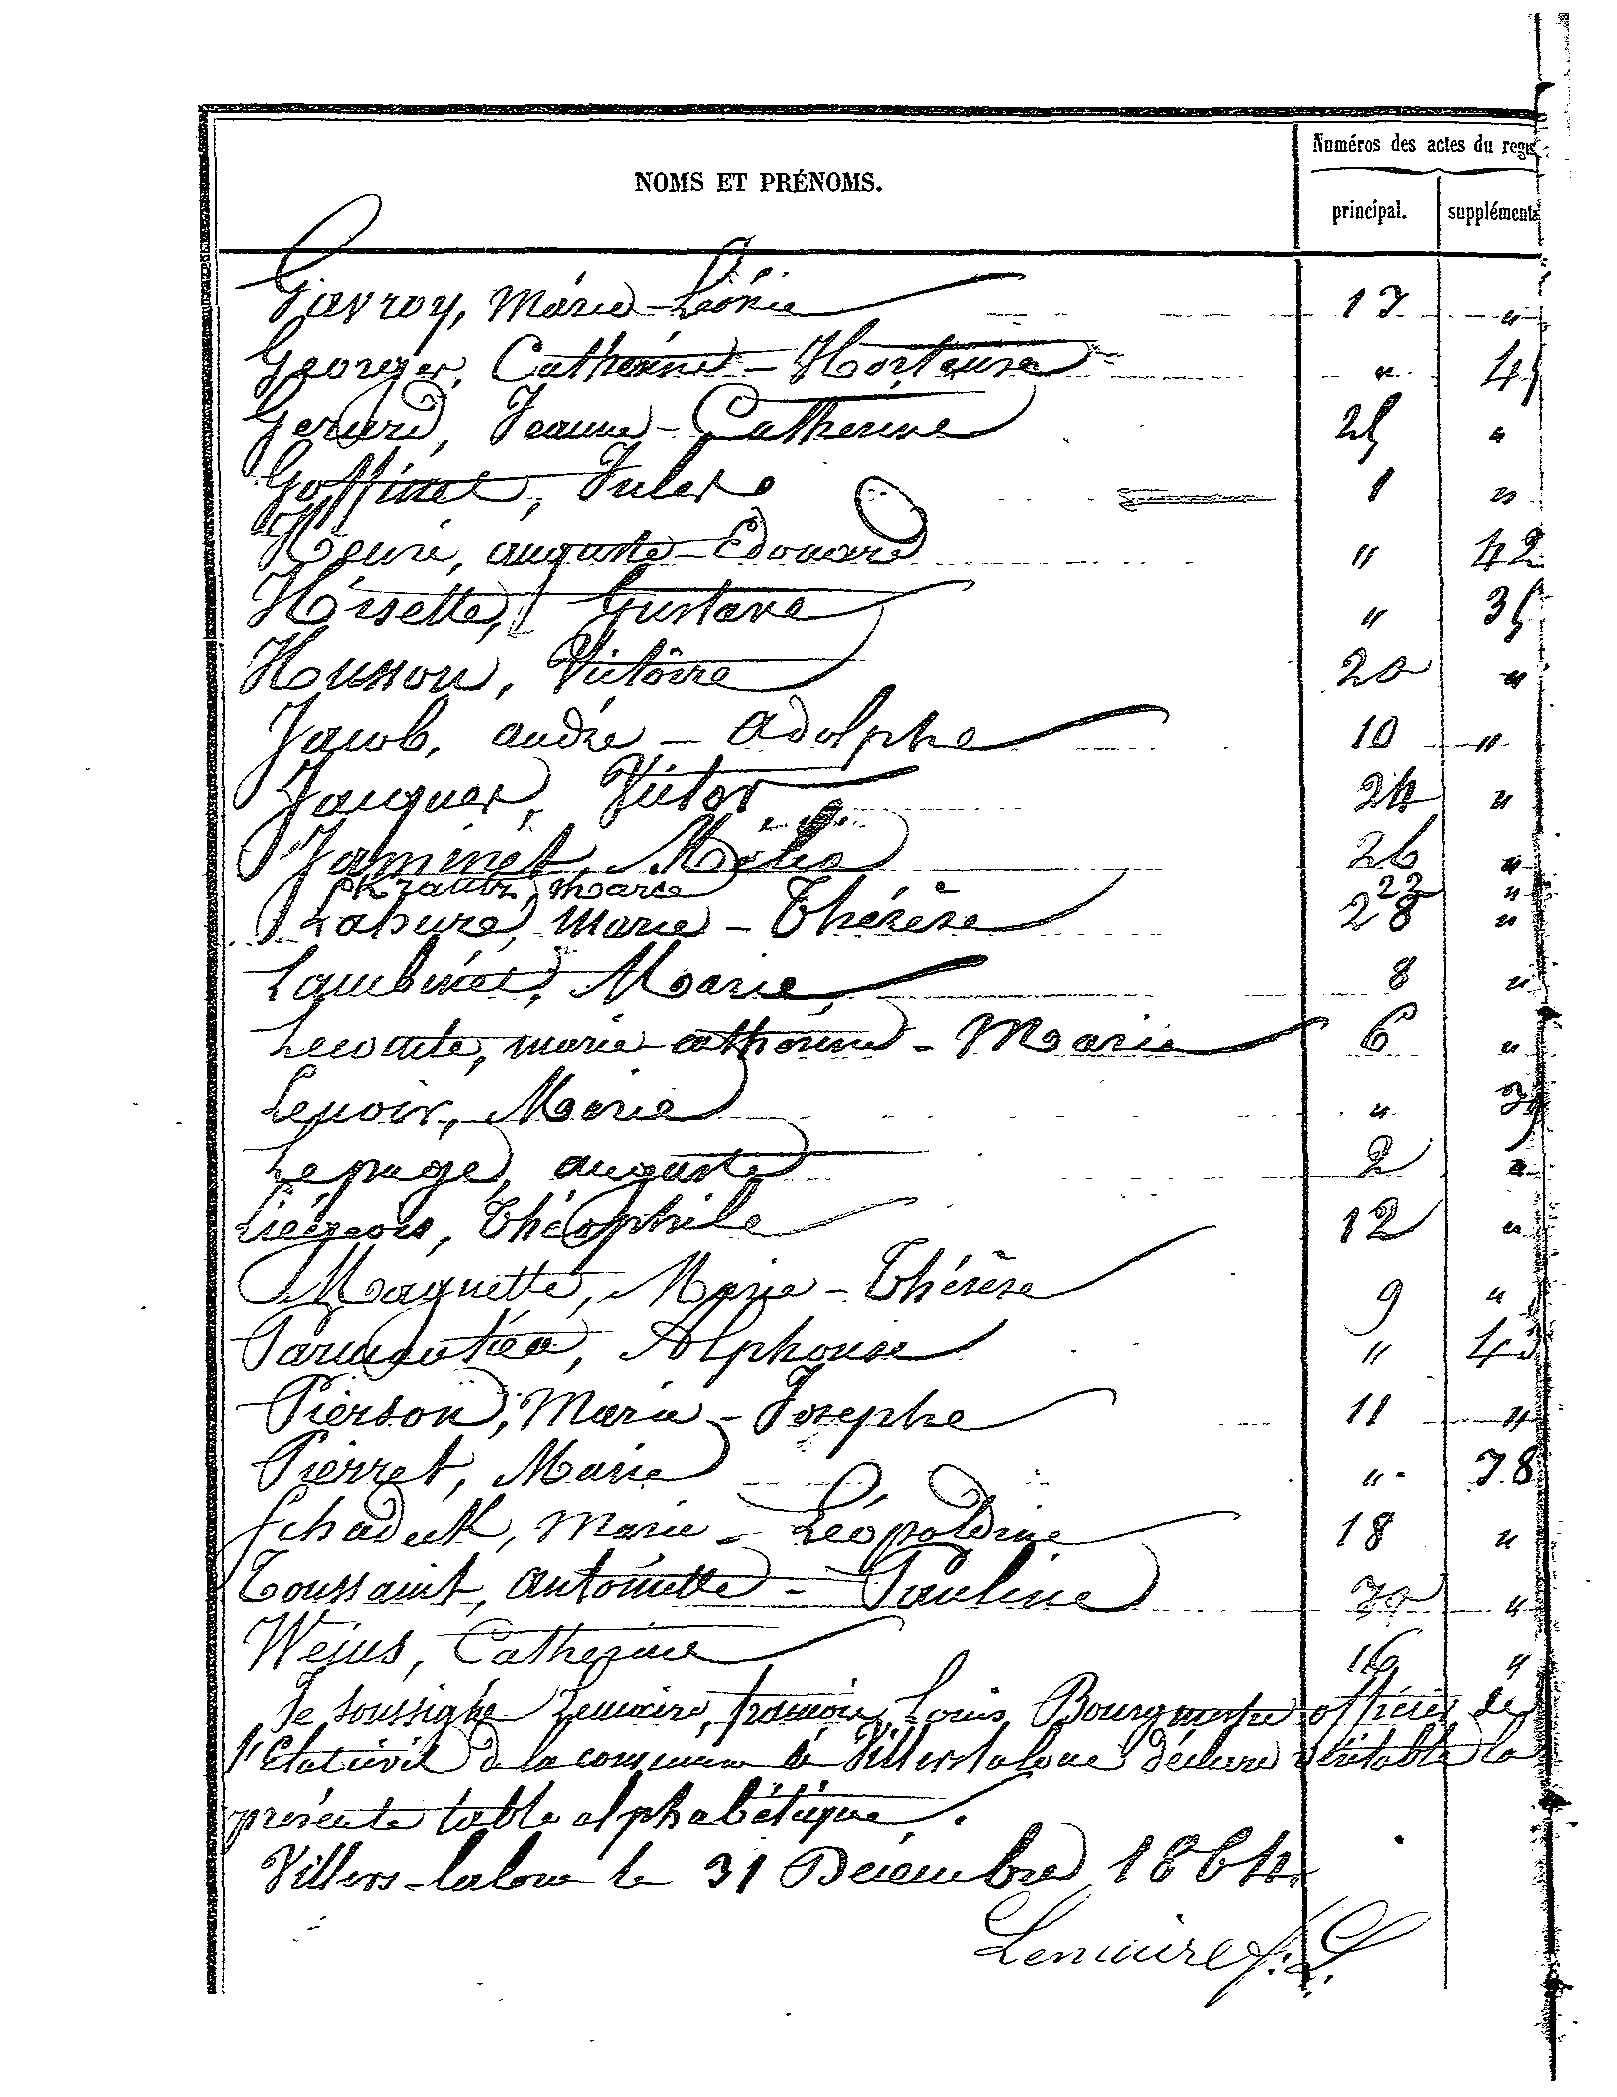 NOMS ET PRÉNOMS.
Numéros des actes du regis
principal. supplémenta
Gavroy, Marie-Léonie 17 "
Georges, Catherine-Hortense " 45
Gerard, Jeanne-Catherine 25 "
Goffinet, Jules 1 "
Henri, auguste-Edouard " 42
Hisette, Gustave " 35
Husson, Victoire 20 "
Jacob, andré - adolphe 10 "
Jacques, Victor 24 "
Jaminet, Mélia 26 "
Krantz, Marie 22 "
Lahure, Marie - Thérèse 28 "
Lambinet, Marie 8 "
Lecomte, marie catherine - Marie 6 "
Lenoir, Marie "
Lepage, auguste 2 "
Liégeois, Théophile 12 "
Maquette, Marie - Thérèse 9 "
Parmentier, Alphonse " 43
Pierson, Marie - Josephe 11 "
Pierret, Marie " 38
Schadeck, Marie - Léopoldine 18 "
Toussaint, antoinette - Pauline 30 "
Weius, Catherine 16 "
Je soussigné Lemaire, françois Louis Bourgmestre officier de
l'Etat civil de la commune de Villers la loue déclare véritable la
présente table alphabétique.
Villers-la loue le 31 Décembre 1864.
Lemaire f. L.